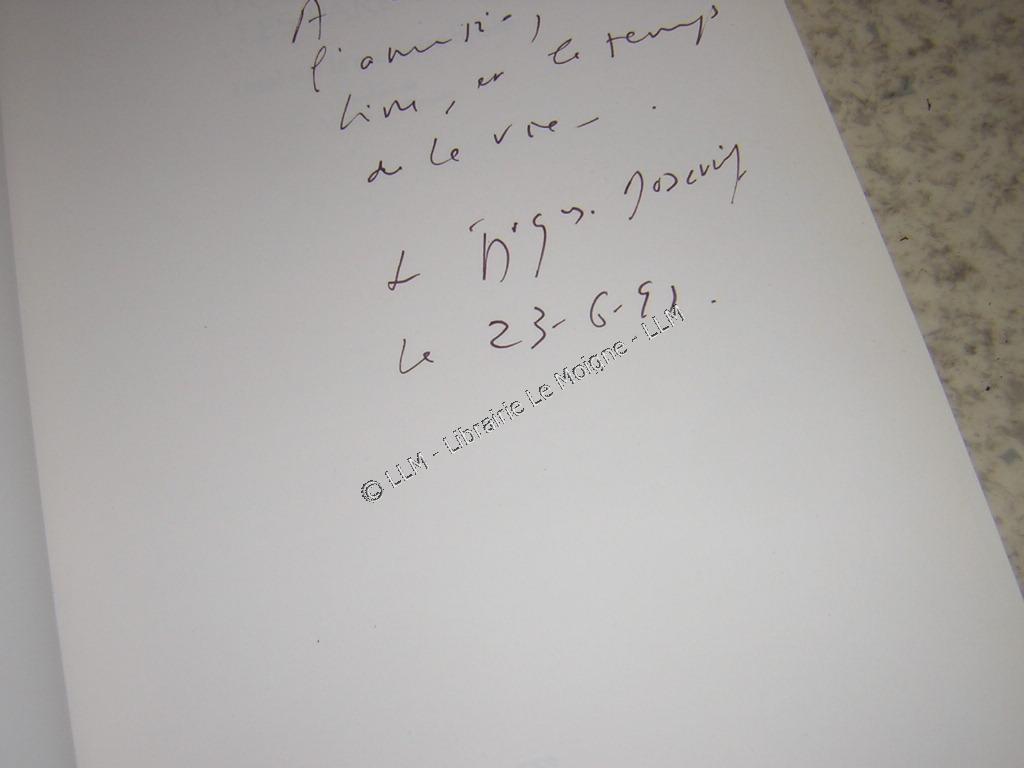 A
l'amitié,
livre, et le temps
de la vie -
le 23-6-91.
© LLM - Librairie Le Moigne - LLM